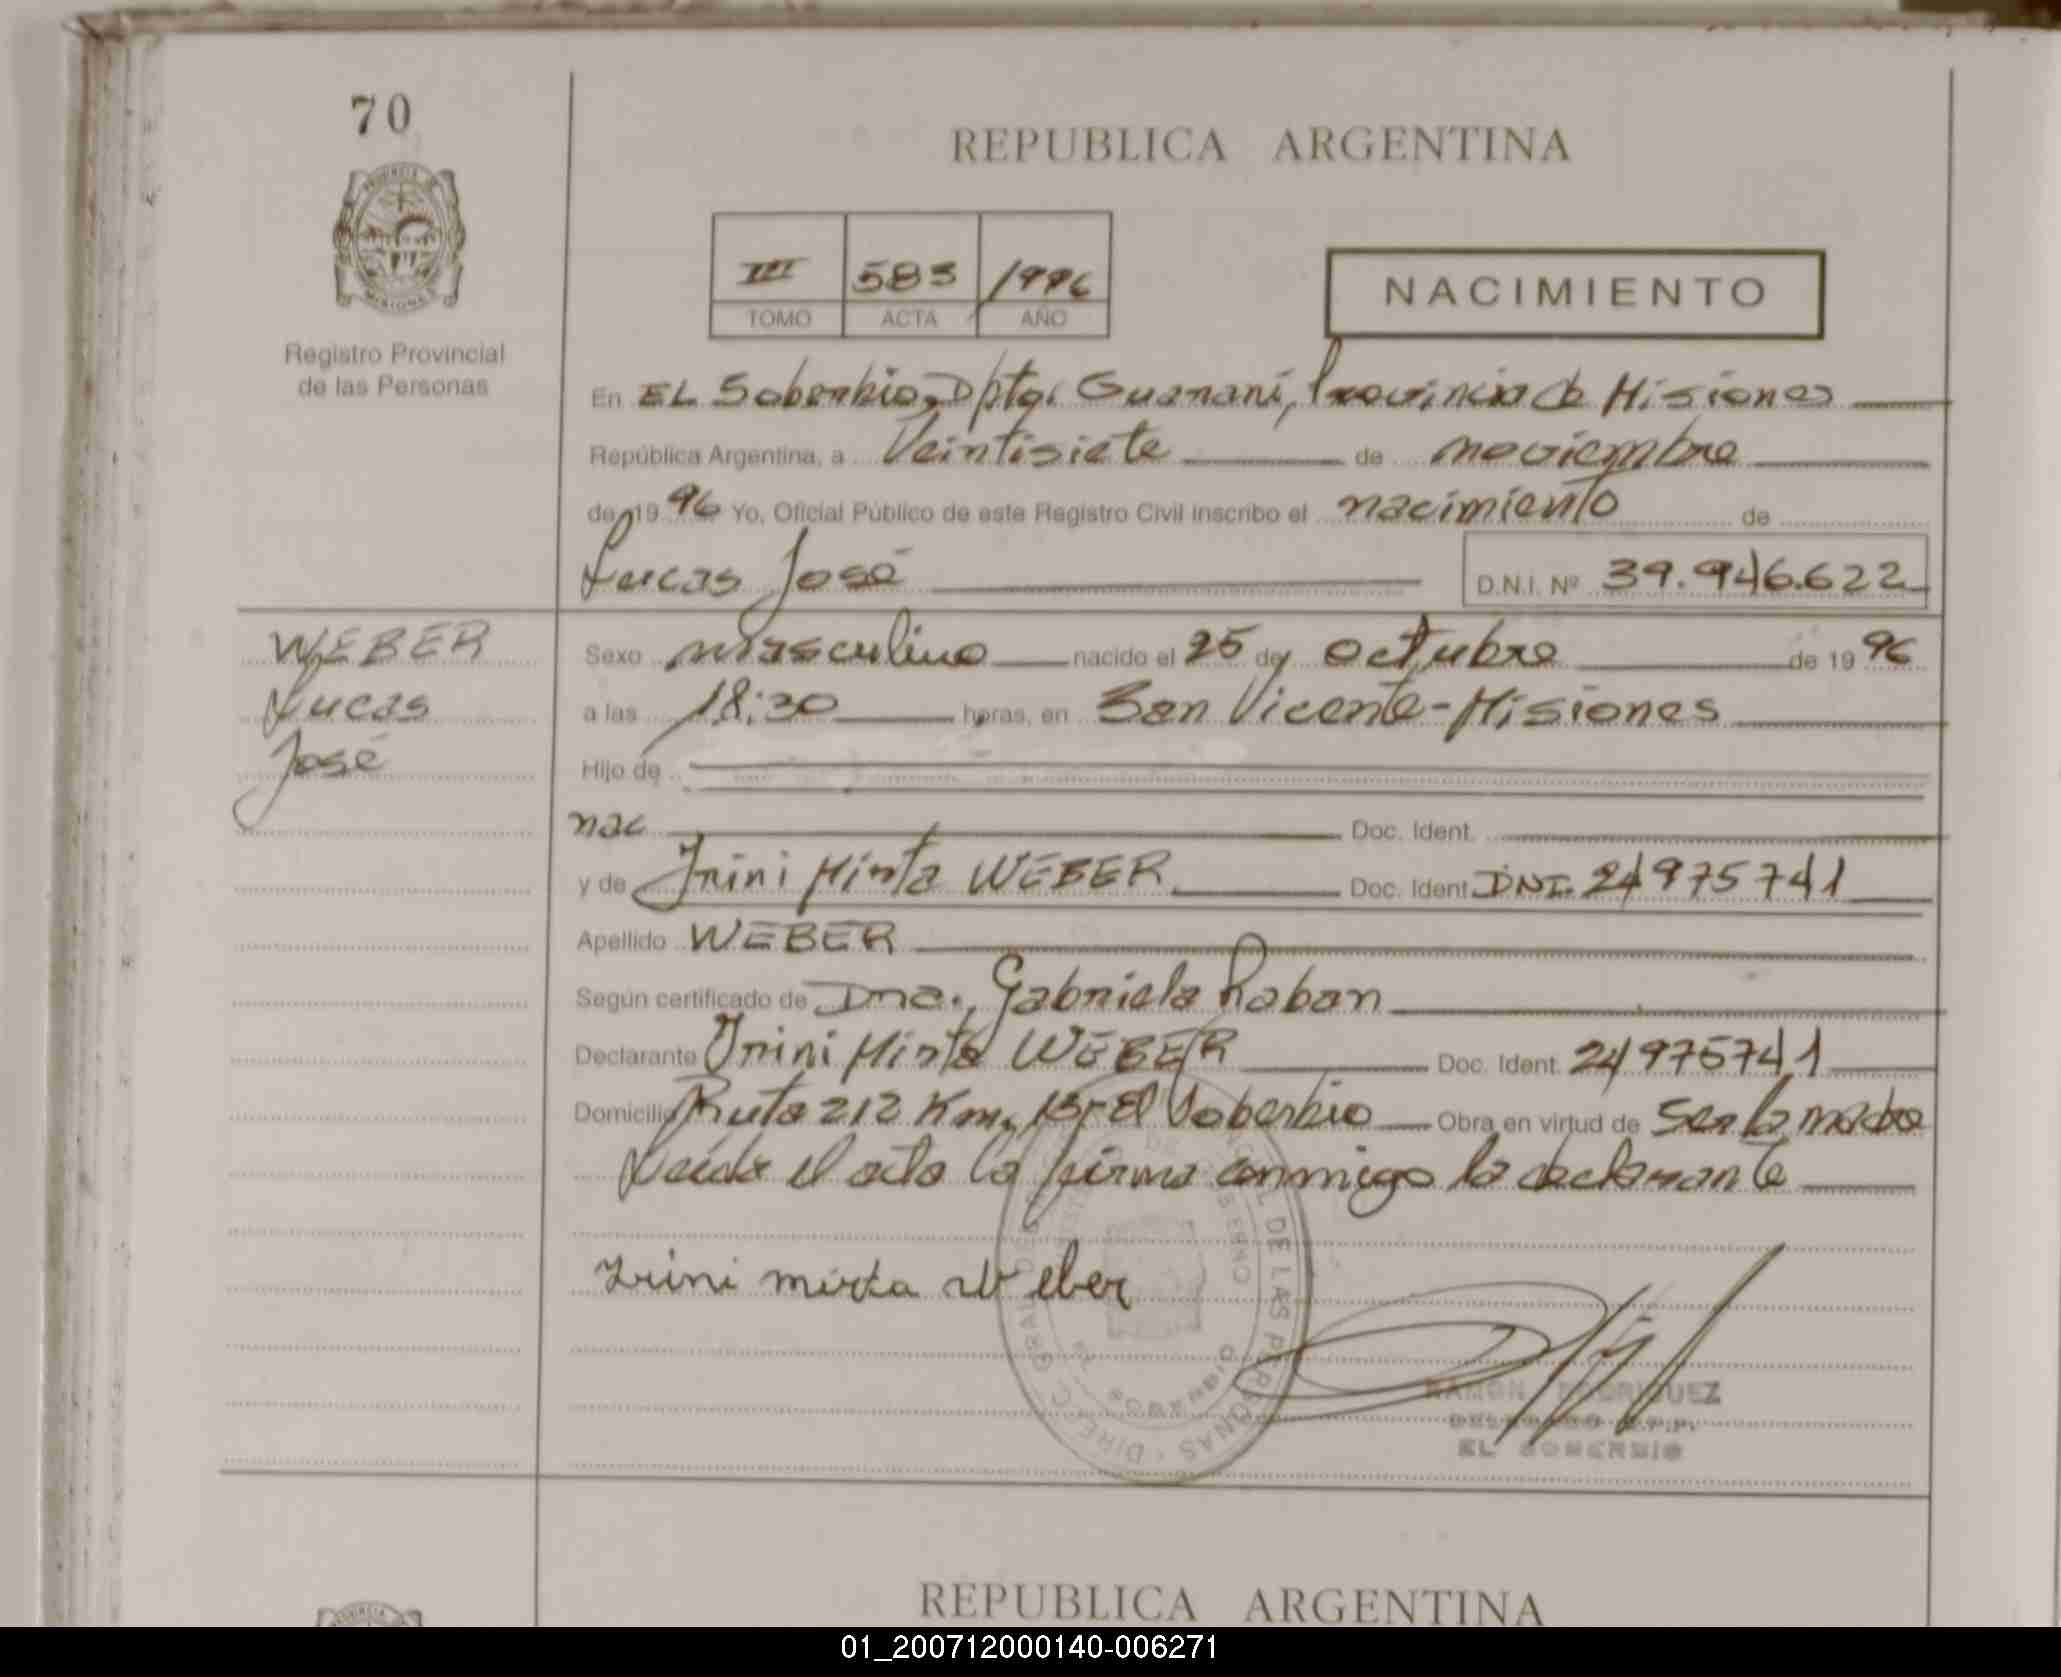 70
REPUBLICA ARGENTINA
PROVINCIA DE
MISIONES
Registro Provincial
de las Personas
III 583 1996
TOMO ACTA AÑO
NACIMIENTO
En EL Soberbio, Dpto. Guaraní, Provincia de Misiones
República Argentina, a Veintisiete de noviembre
de 19 96 Yo, Oficial Público de este Registro Civil inscribo el nacimiento de
Lucas José D.N.I. Nº 39.946.622
WEBER
Lucas
José
Sexo masculino nacido el 25 de octubre de 19 96
a las 18:30 horas, en San Vicente-Misiones
Hijo de
nac Doc. Ident.
y de Irini Mirta WEBER Doc. Ident. DNI. 24975741
Apellido WEBER
Según certificado de Dna., Gabriela Laban
Declarante Irini Mirta WEBER Doc. Ident. 24975741
Domicilio Ruta 212 Km, 13, El Soberbio Obra en virtud de ser la madre
Leída el acta la firma conmigo la declarante
Irini mirta Weber
DE LAS PERSONAS · DIREC. GRAL. DEL
EL SOBERBIO
RAMON RODRIGUEZ
DELEGADO R.P.P.
EL SOBERBIO
REPUBLICA ARGENTINA
PROVINCIA
01_200712000140-006271